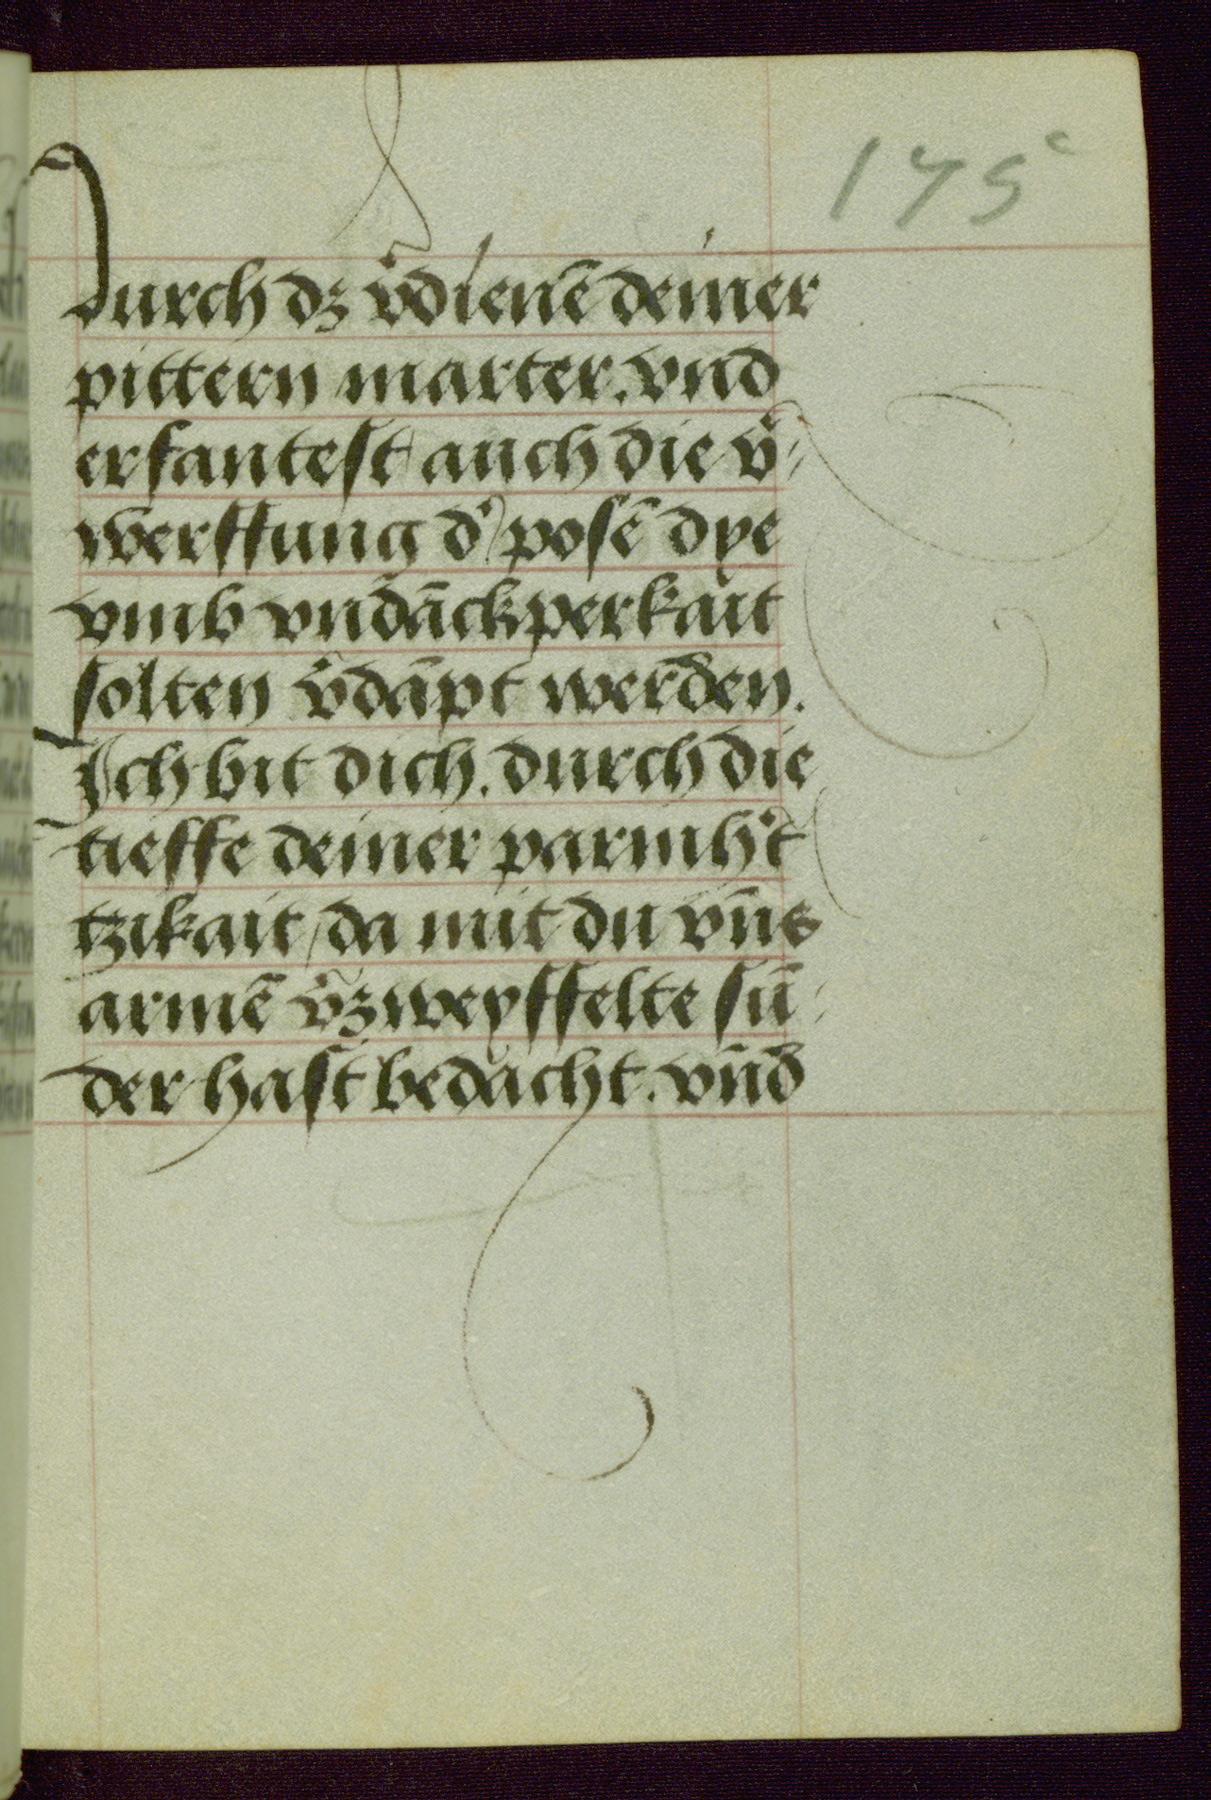 175c
durch dz v̄dienē deiner
pittern marter. vnd
erkantest auch die v̄-
werffung d' posē dye
vmb vndāckperkait
solten v̄dāpt werden.
Ich bit dich. durch die
tieffe deiner parmh't
tzikait / da mit du vn̄s
armē v̄zweyffelte sū-
der hast bedacht. vn̄d